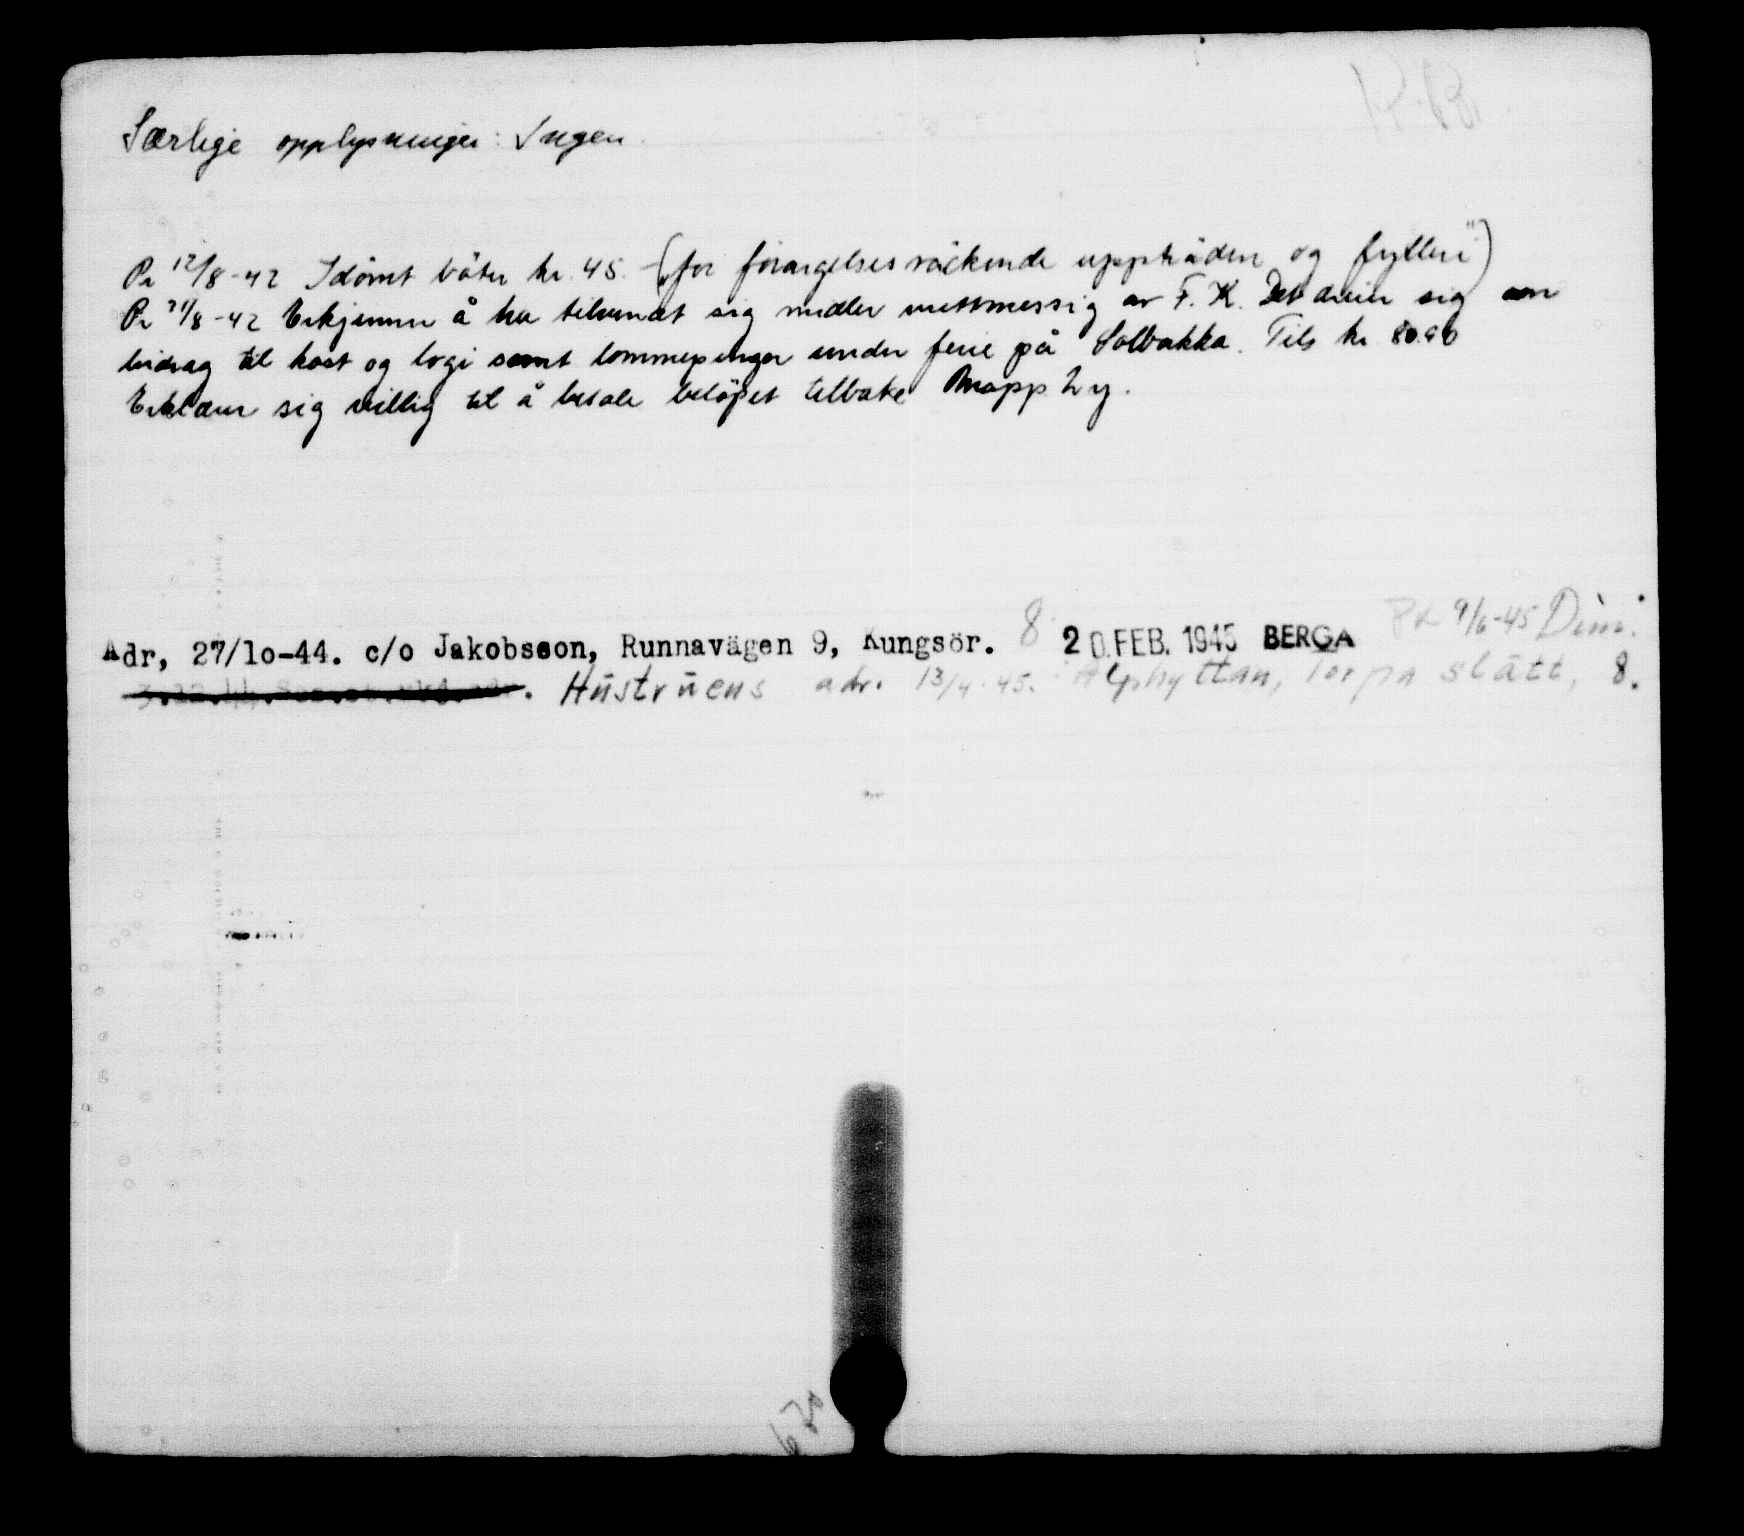 Særlige opplysninger: Ingen.
Pr 12/8-42 Idömt böter kr. 45. (for förargelsesväckende uppträden og fylleri")
Pr 21/8-42 Erkjenner å ha tilvendt sig midler urettmessig av F. K. Det dreier sig om
bidrag til kost og logi samt lommepenger under ferie på Solbakka. Tils kr. 80.90
Erklærer sig villig til å betale beløpet tilbake Mapp Ly.
8 9/6-45 Dim.
Adr, 27/lo-44. c/o Jakobsson, Runnavägen 9, Kungsör. 20.FEB. 1945 BERGA
Hustruens adr. 13/4-45. Alphyttan, Torpa slätt, 8.